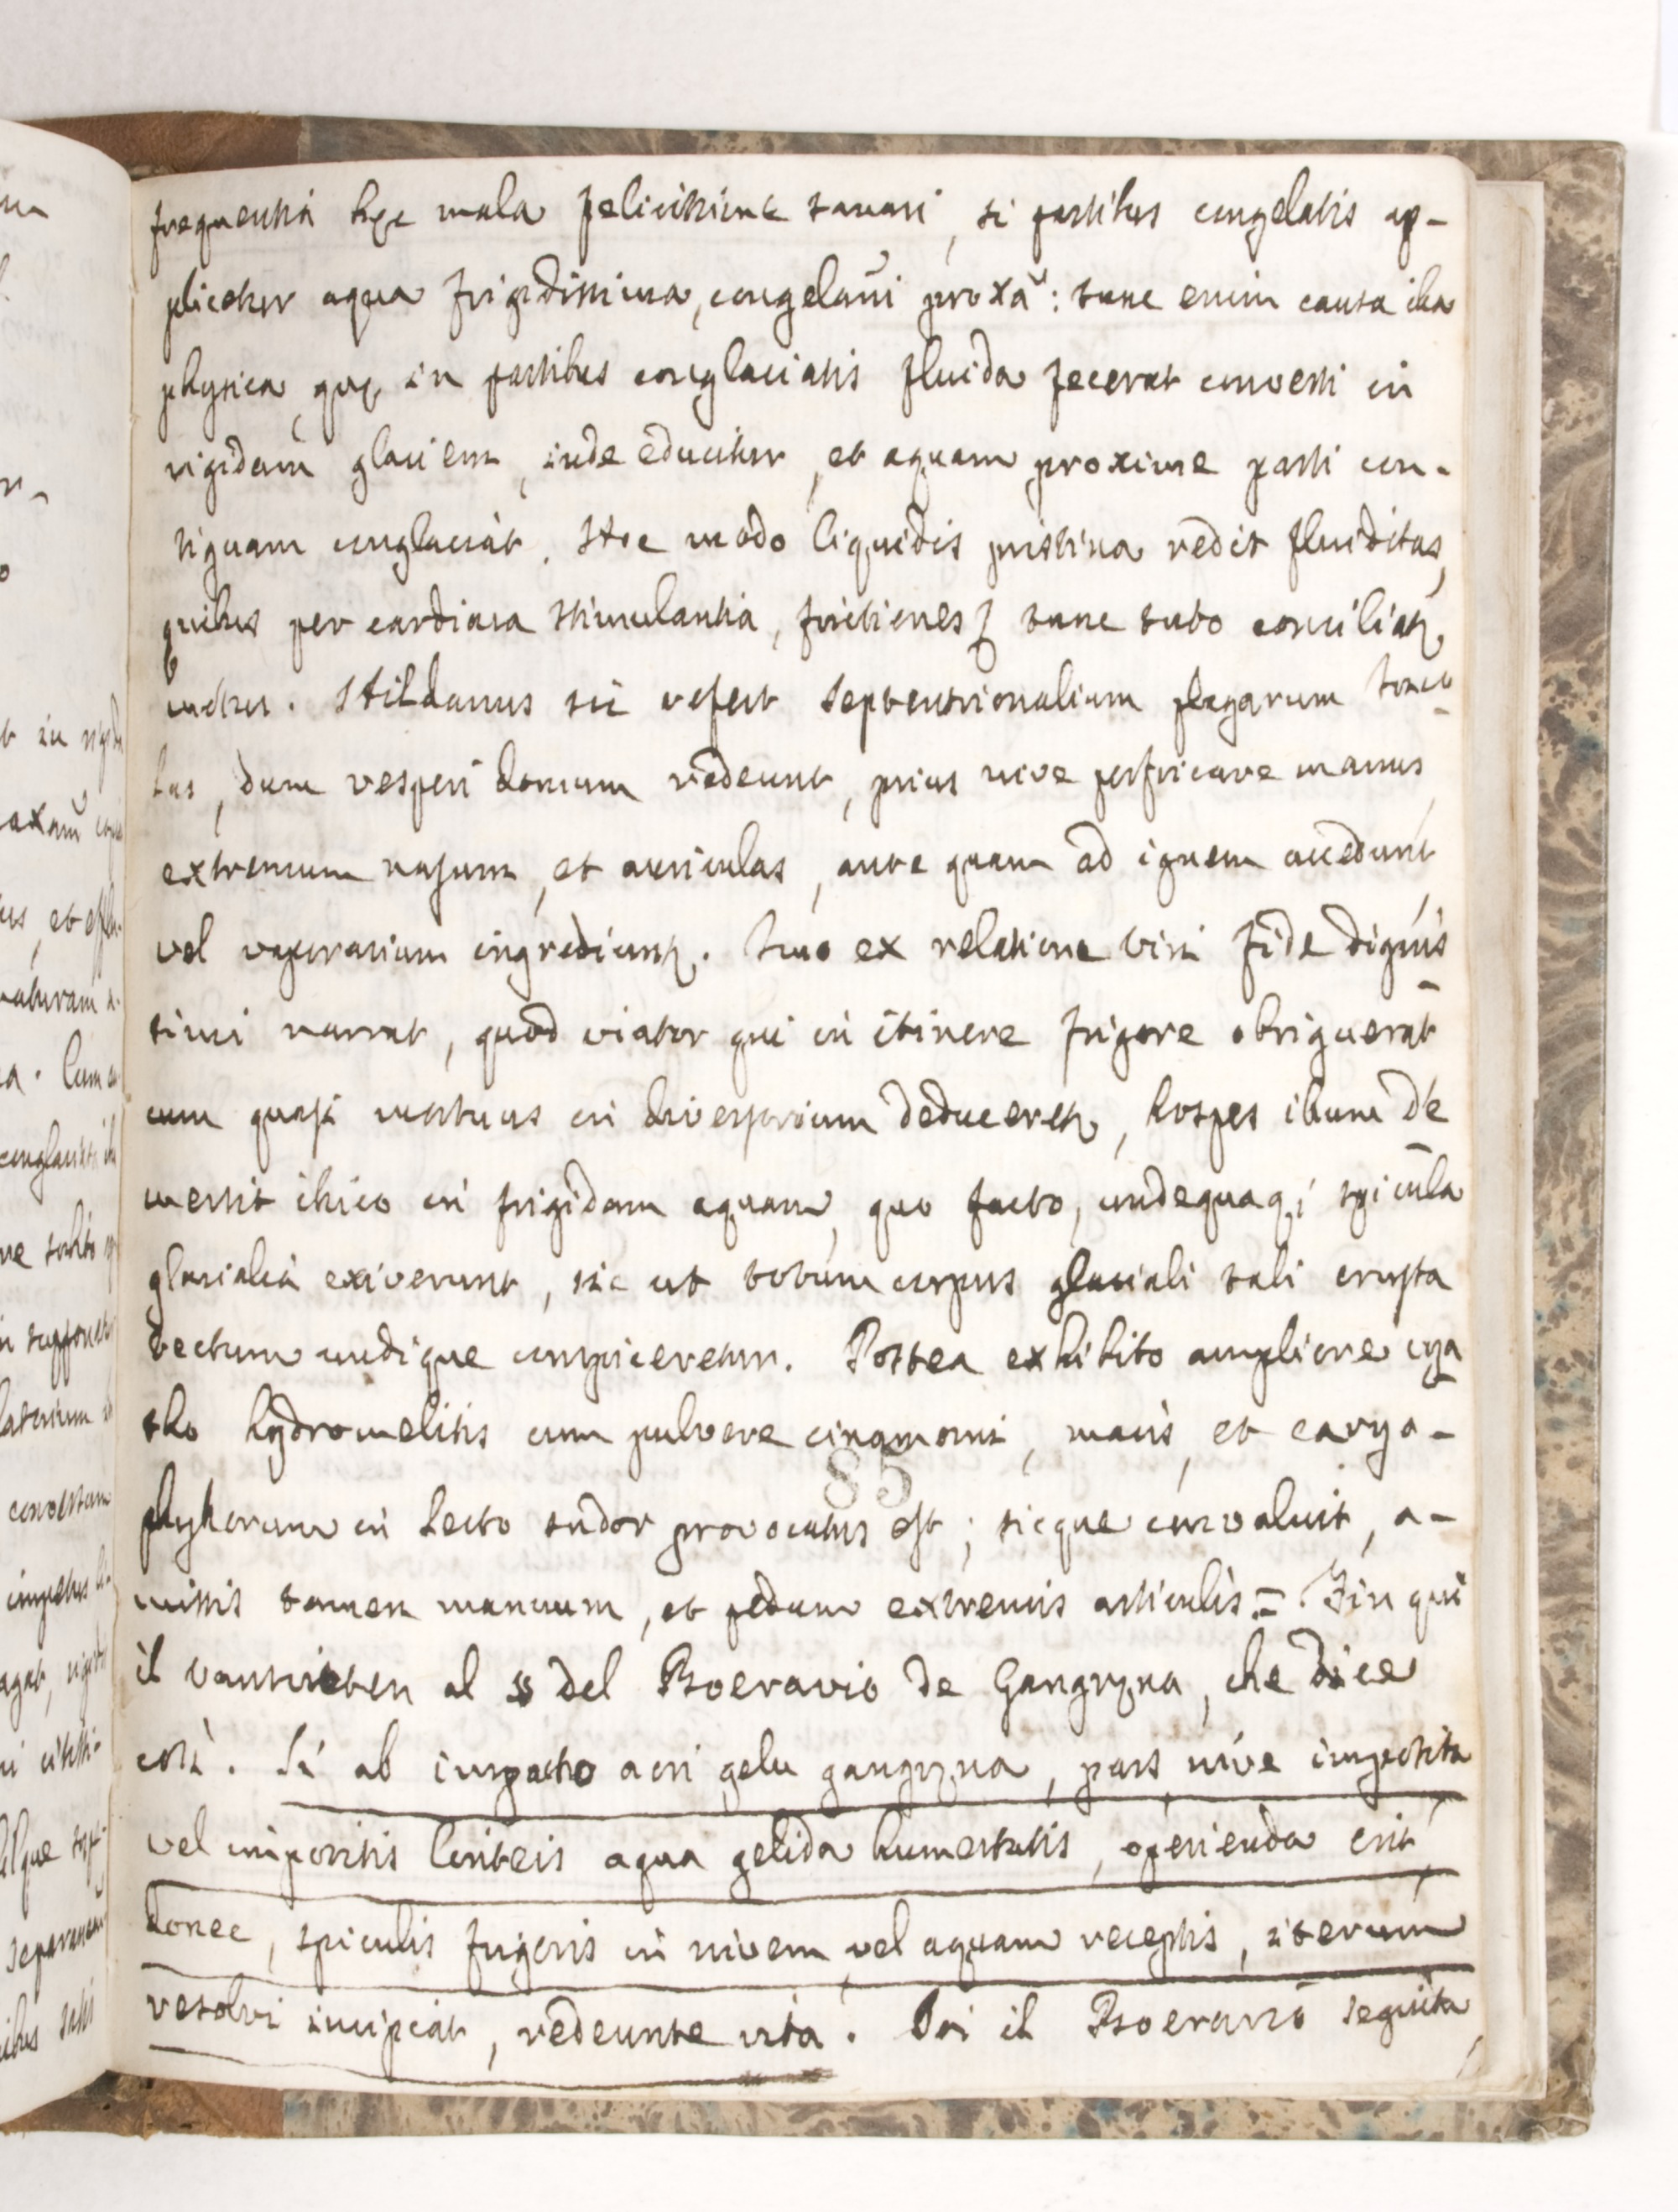 frequentia hęc mala felicissime sanari, si partibus congelatis ap-
plicetur aqua frigidissima, congelaõi proxã: tunc enim causa illa
physica, quę in partibus conglaciatis fluida fecerat converti in
rigidam glaciem, inde educitur, et aquam proxime parti con-
tiguam conglaciat. Hoc modo liquidis pristina redit fluiditas,
quibus per cardiaca stimulantia, frictionesq tunc tuto conciliatr
motus. Hildanus sic refert septentrionalium plagarum Inco
las, dum vesperi domum redeunt, prius nive perfricare manus,
extremum nasum, et auriculas, ante quam ad ignem accedunt,
vel vaporarium ingrediuntr. Imo ex relatione viri fide dignis
simi narrat, quod viator qui in itinere frigore obriguerat
cum quasi mortuus in diversorium deduceretr, hospes illum de
mersit illico in frigidam aquam, quo facto, undequaq; spicula
glacialia exiverunt, sic ut totum corpus glaciali tali crusta
tectum undique conspiceretur. Postea exhibito ampliore cya
tho hydromelitis cum pulvere cinamomi, macis, et caryo-
phyllorum in lecto sudor provocatus est; sicque convaluit, a-
missis tamen manuum, et pedum extremis articulis = Fin qui
il vanswieten al § del Boeravio de Gangręna, che dice
così. Si ab impacto aeri gelu gangręna, pars nive impetita
vel impositis linteis aqua gelida humectatis, operienda erit,
donec, spiculis frigoris in nivem vel aquam receptis, iterum
resolvi incipiat, redeunte vita. Poi il Boeravio seguita,
85